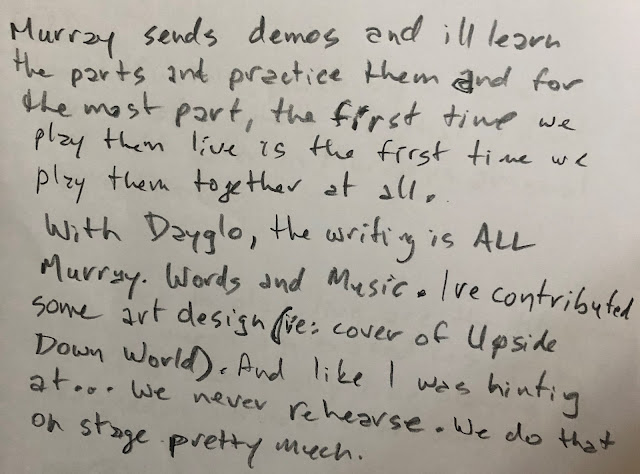 Murray sends demos and ill learn
the parts and practice them and for
the most part, the first time we
play them live is the first time we
play them together at all.
With Dayglo, the writing is ALL
Murray. Words and Music. I've contributed
some art design (re: cover of Upside
Down World). And like I was hintig
at... we never rehearse. We do that
on stage pretty much.